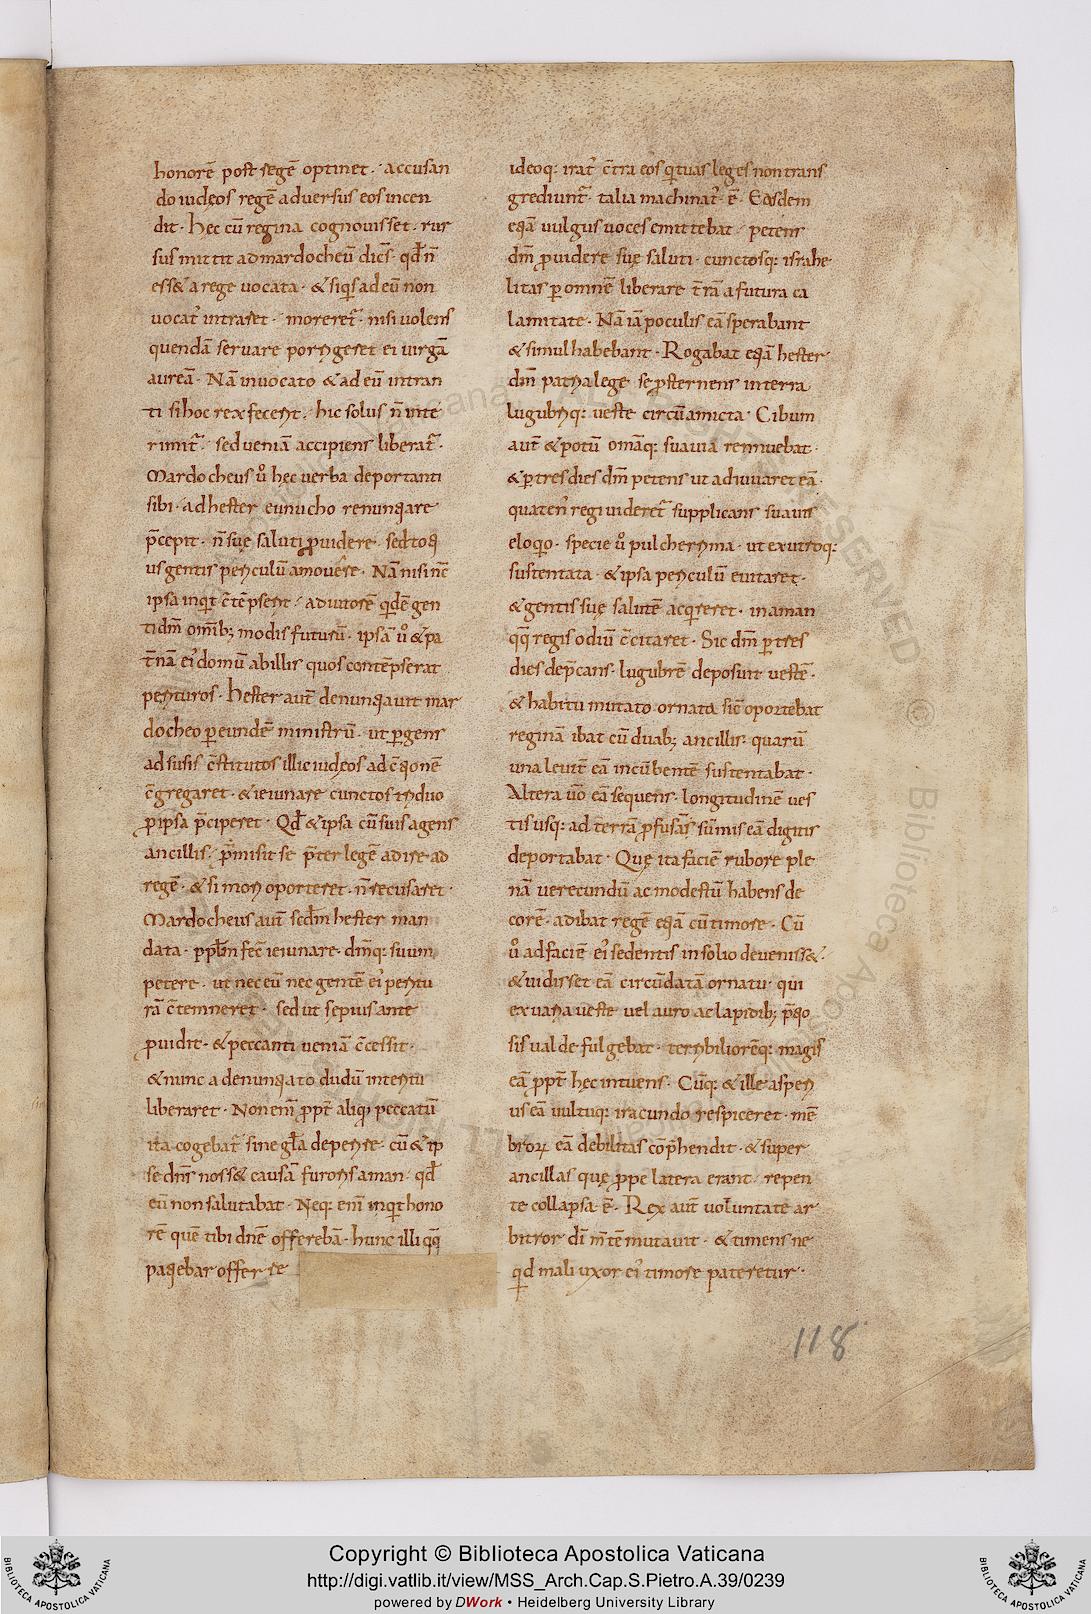 honorē post regē optinet · accusan
do iudęos regē adversus eos incen
dit · Hęc cū regina cognouisset · rur
sus mittit ad mardocheū dicēs · qđ ñ
ess& a rege uocata · & siq̇s ad eū non
uocat᾿ intraset · moreret᾿ · nisi uolens
quendā servare porrigeret ei virgā
aureā · Nā inuocato & ad eū intran
ti si hoc rex fecerit · hic solus ñ inte
rimit᾿ · sed ueniā accipiens liberat᾿ ·
Mardocheus u᾿o hęc uerba deportanti
sibi · ad hester eunucho renuntiare
p̄cepit · ñ suę saluti ꝓuidere · sed toti
us gentis periculū amouere · Nā nisi nc̄
ipsa inquit c̄tēpserit · adiutorē qdē gen
ti dm̄ omīb; modis futurū · ipsā u᾿o & pa
t̄nā ei᾿ domū ab illis quos contēpserat
perituros · Hester aut̄ denuntiauit mar
docheo ꝑ eundē ministrū · ut ꝑgens
ad susis c̄stitutos illic iudęos ad c̄tionē
c̄gregaret · & ieiunare cunctos triduo
ꝓ ipsa p̄ciperet · Qđ & ipsa cū suis agens
ancillis · ꝓmisit se p̄ter legē adire ad
regē · & si mori oporteret · ñ recusaret ·
Mardocheus aut̄ scđm hester man
data · pplm̄ fec̄ ieiunare · dm̄q: suum
petere · ut nec eū nec gentē ei᾿ peritu
rā c̄temneret · sed ut sepius ante
ꝓuidit · & peccanti ueniā c̄cessit ·
& nunc a denuntiato dudū interitu
liberaret · Non enī ꝓpt̄ aliqđ peccatū
ita cogebat᾿ sine gl̄a deperire · cū & ip
se dn̄s noss& causā furoris aman · qđ
eū non salutabat · Neq: enī inquit hono
rē quē tibi dn̄e offerebā · hunc illi qq̄
patiebar offerre
ideoq: irat᾿ c̄tra eos qi tuas leges non trans
grediunt᾿ · talia machinat᾿ ē · Eosdem
etiā uulgus uoces emittebat · petens
dm̄ ꝓuidere suę saluti · cunctosq: israhe
litas ꝑ omnē liberare t̄rā a futura ca
lamitate · Nā iā ꝑ oculis eā sperabant
& simul habebant · Rogabat etiā hester
dm̄ patria lege se ꝓsternens in terra
lugubriq: ueste circū amicta · Cibum
aut̄ & potū omīaq: suauia rennuebat ·
& ꝑ tres dies dm̄ petens ut adiuuaret eā ·
quaten᾿ regi uideret᾿ supplicans suauis
eloqio · specie u᾿o pulcherrima · ut ex utroq:
sustentata · & ipsa periculū euitaret ·
& gentis suę salutē acqreret · in aman
qq̄ regis odiū c̄citaret · Sic dm̄ ꝑ tres
dies dep̄cans · lugubrē deposuit uestē ·
& habitu mutato ornata sic̄ oportebat
reginā ibat cū duab; ancillis · quarū
una leuit̄ eā incūbentē sustentabat ·
Altera u᾿o eā sequens · longitudinē ues
tis usq: ad terrā ꝓfusā · sūmis eā digitis
deportabat · Quę ita faciē rubore ple
nā uerecundū ac modestū habens de
corē · adibat regē etiā cū timore · Cū
u᾿o ad faciē ei᾿ sedentis in solio deueniss& ·
& uidisset eā circūdatā ornatu · qui
ex uaria ueste uel auro ac lapidib; p̄tio
sis ualde fulgebat · terribiliorēq: magis
eā ꝓpt̄ hęc intuens · Cūq: & ille asperi
us eā uultuq: iracundo respiceret · mē
broꝝ eā debilitas cōp̄hendit · & super
ancillas quę ꝓpe latera erant · repen
te collapsa ē · Rex aut̄ uoluntate ar
bitror dī m̄tē mutauit · & timens ne
qid mali uxor ei᾿ timore pateretur ·
118
Copyright © Biblioteca Apostolica Vaticana
http://digi.vatlib.it/view/MSS_Arch.Cap.S.Pietro.A.39/0239
powered by DWork • Heidelberg University Library
BIBLIOTECA APOSTOLICA VATICANA
BIBLIOTECA APOSTOLICA VATICANA